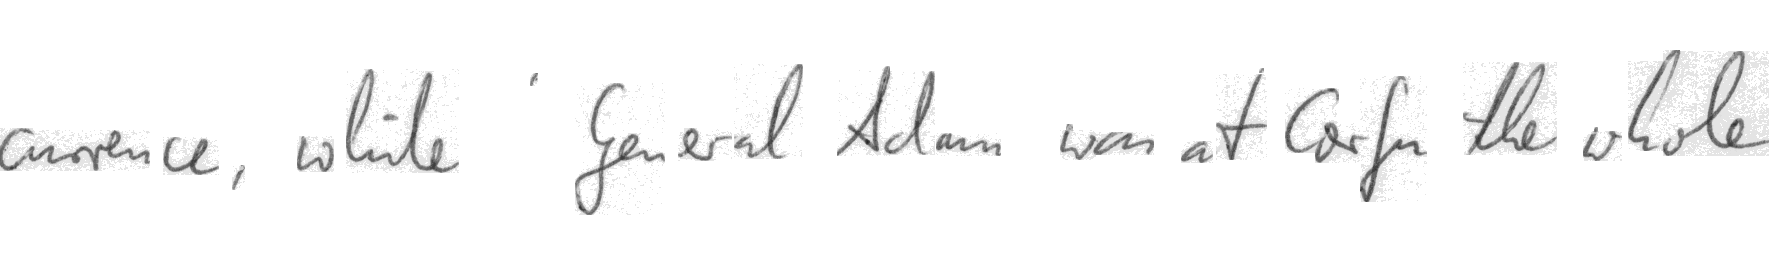 currence, while ' General Adam was at Corfu the whole